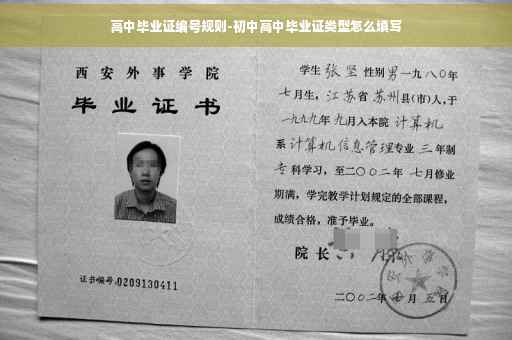 高中毕业证编号规则-初中高中毕业证类型怎么填写
西安外事学院
毕业证书
证书编号:0209130411
学生张坚性别男一九八〇年
七月生,江苏省苏州县(市)人,于
一九九九年九月入本院计算机
系计算机信息管理专业三年制
专科学习,至二〇〇二年七月修业
期满,学完教学计划规定的全部课程,
成绩合格,准予毕业。
院长
二〇〇二年 月五日